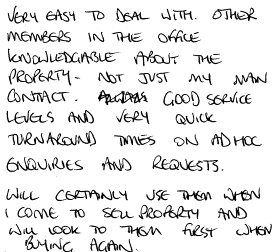 VERY EASY TO DEAL WITH. OTHER
MEMBERS IN THE OFFICE
KNOWLEDGIABLE ABOUT THE
PROPERTY - NOT JUST MY MAIN
CONTACT. GOOD SERVICE
LEVELS AND VERY QUICK
TURNAROUND TIMES ON AD HOC
ENQUIRIES AND REQUESTS.
WILL CERTAINLY USE THEM WHEN
I COME TO SELL PROPERTY AND
WILL LOOK TO THEM FIRST WHEN
BUYING AGAIN.